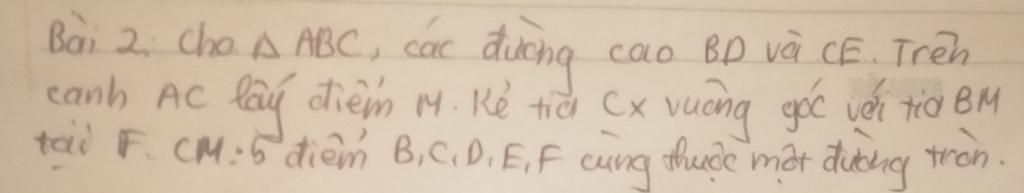 Bài 2. Cho Δ ABC, các đường cao BD và CE. Trên
cạnh AC lấy điểm M. Kẻ tia Cx vuông góc với tia BM
tại F. CM: 5 điểm B, C, D, E, F cùng thuộc một đường tròn.